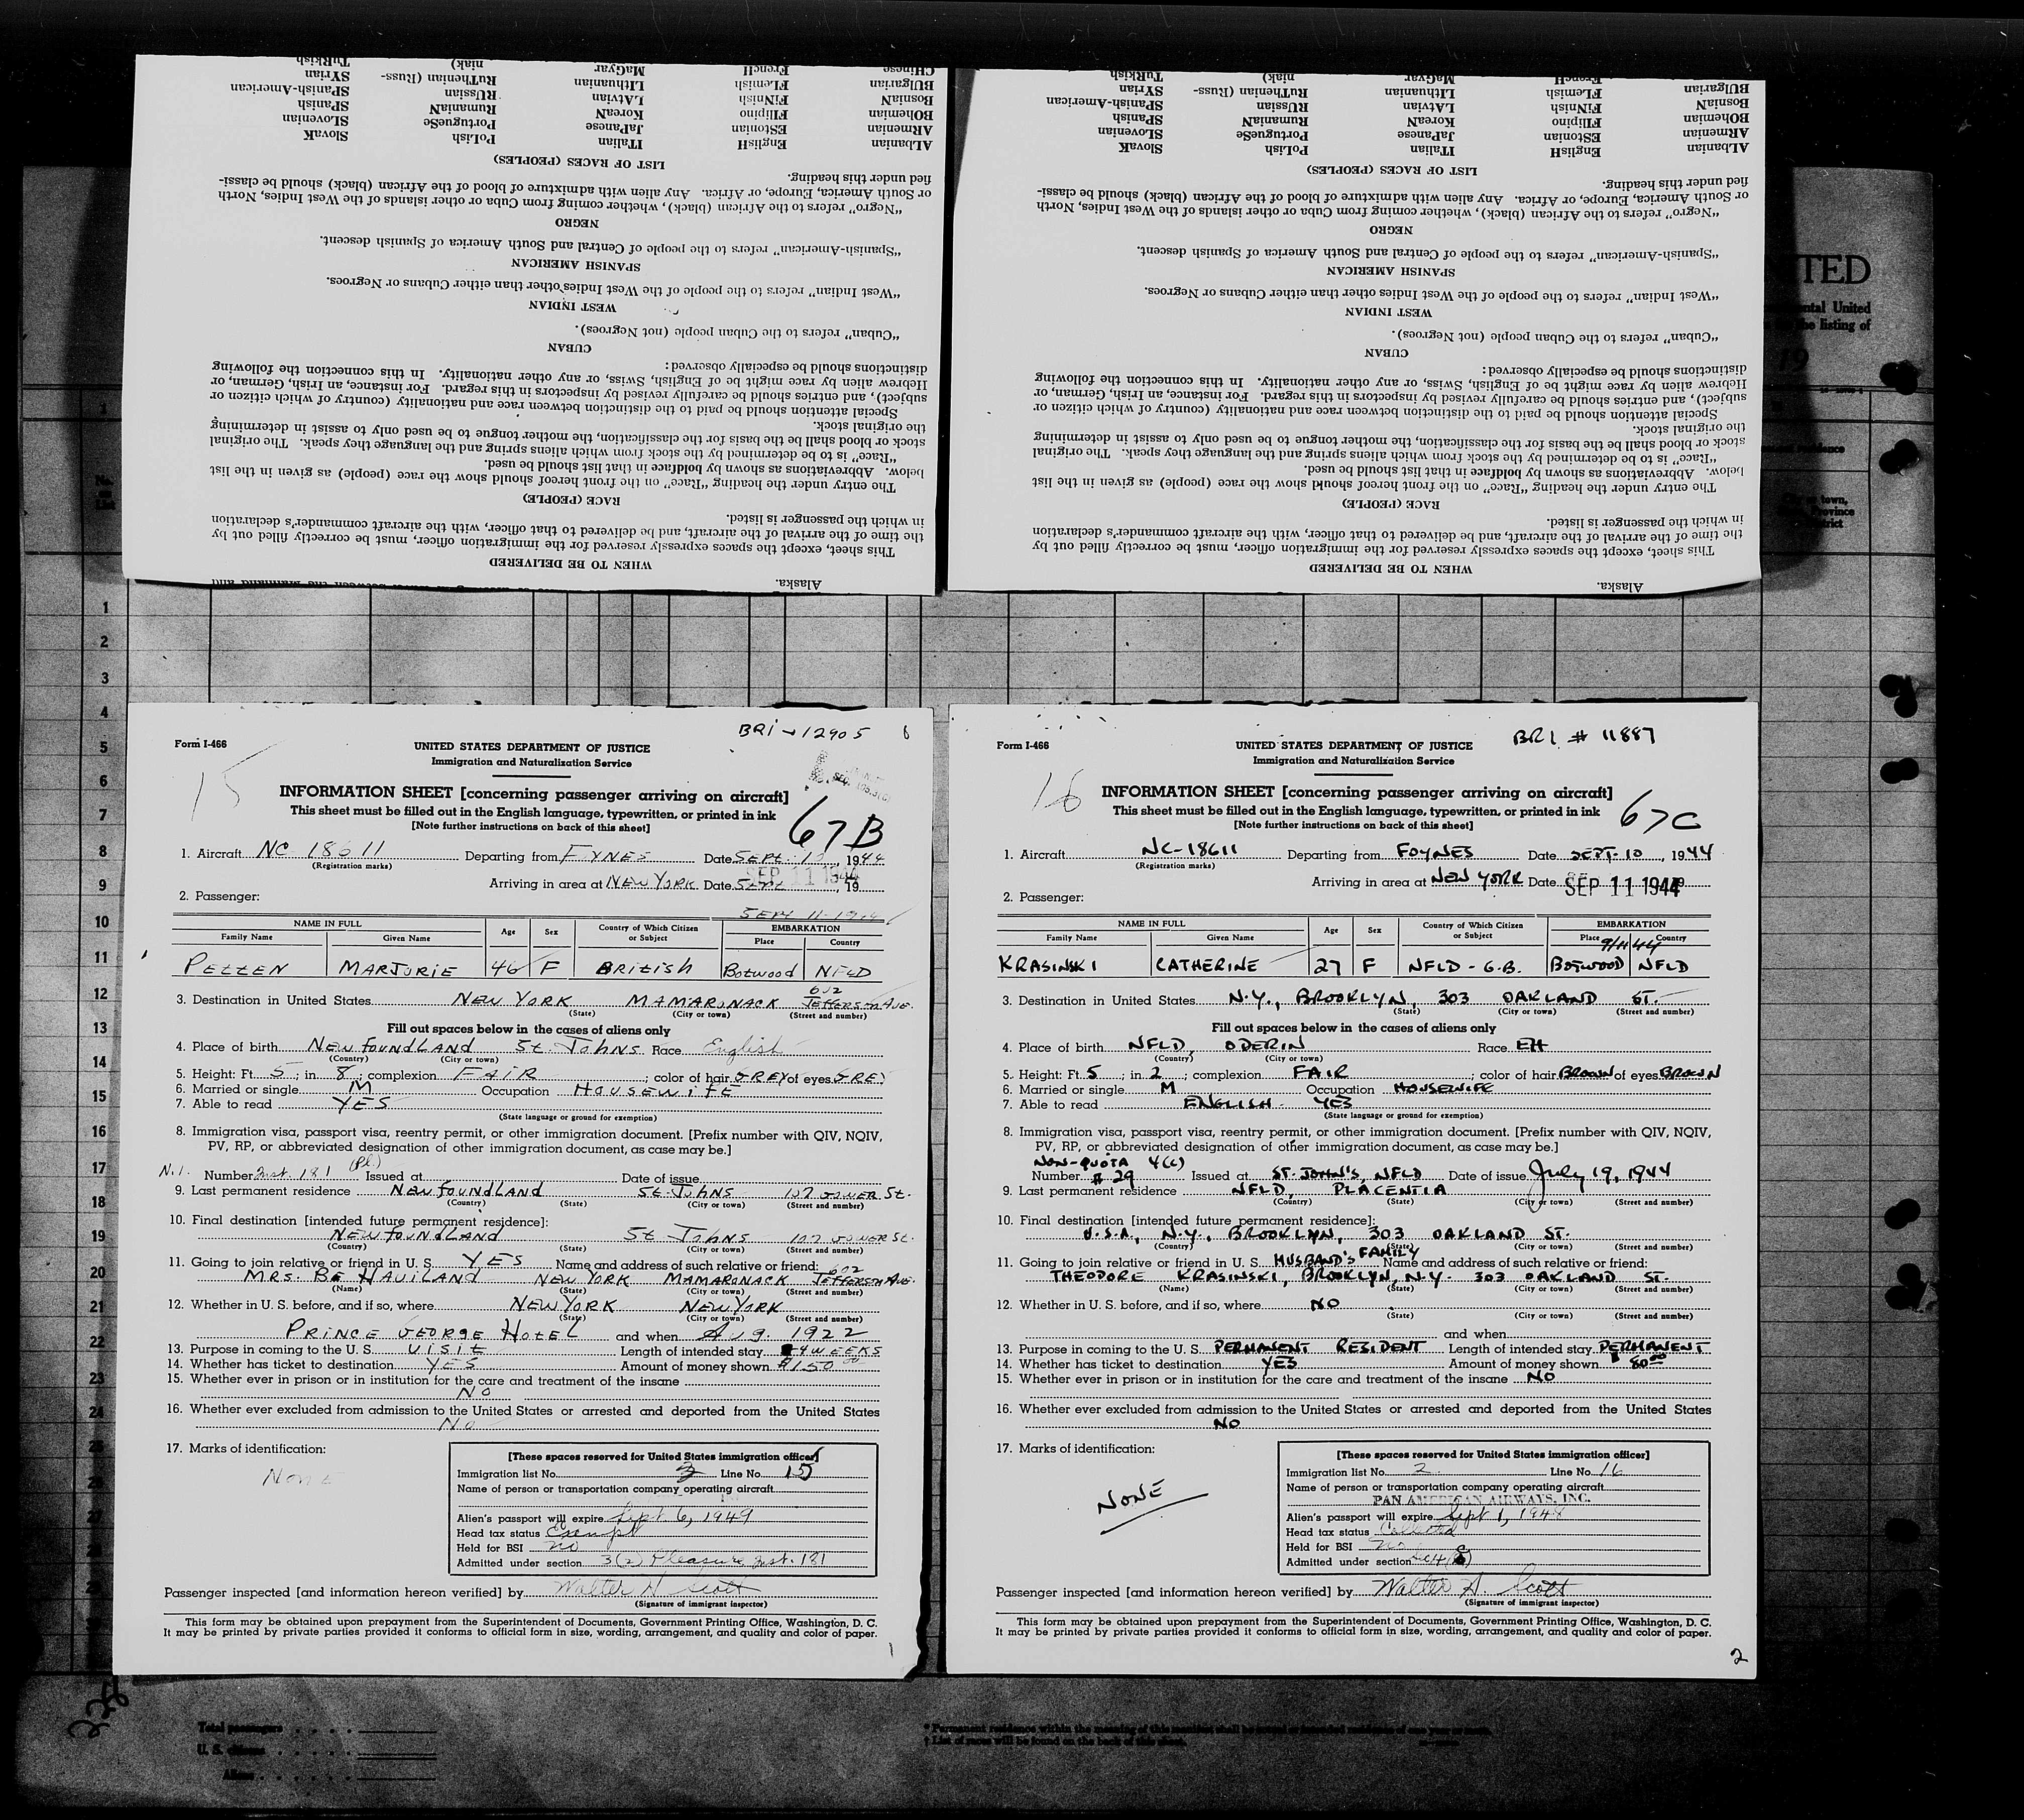 Form I-466
BRI - 12905
15
UNITED STATES DEPARTMENT OF JUSTICE
Immigration and Naturalization Service
INFORMATION SHEET [concerning passenger arriving on aircraft]
This sheet must be filled out in the English language, typewritten, or printed in ink
[Note further instructions on back of this sheet]
67B
1. Aircraft NC 18611 Departing from FYNES Date SEPT. 10, 1944
(Registration marks)
Arriving in area at NEW YORK Date SEPT , 19
SEP 11 1944
2. Passenger:
SEPT 11 1944
NAME IN FULL Age Sex Country of Which Citizen or Subject EMBARKATION
Family Name Given Name Place Country
PETTEN MARJORIE 46 F BRITISH Botwood NFLD
602
3. Destination in United States NEW YORK MAMARONACK JEFFERSON AVE.
(State) (City or town) (Street and number)
Fill out spaces below in the cases of aliens only
4. Place of birth NEWFOUNDLAND St. JOHNS Race English
(Country) (City or town)
5. Height: Ft. 5; in 8; complexion FAIR; color of hair GREY of eyes GREY
6. Married or single M Occupation HOUSEWIFE
7. Able to read YES
(State language or ground for exemption)
8. Immigration visa, passport visa, reentry permit, or other immigration document. [Prefix number with QIV, NQIV,
PV, RP, or abbreviated designation of other immigration document, as case may be.]
N.I. Number Inst. 181 (Pl.) Issued at Date of issue
9. Last permanent residence NEWFOUNDLAND St. JOHNS 107 GOWER St.
(Country) (State) (City or town) (Street and number)
10. Final destination [intended future permanent residence]:
NEWFOUNDLAND St JOHNS 107 GOWER St.
(Country) (State) (City or town) (Street and number)
11. Going to join relative or friend in U. S. YES Name and address of such relative or friend: 602
MRS. BE HAVILAND NEW YORK MAMARONACK JEFFERSON AVE.
(Name) (State) (City or town) (Street and number)
12. Whether in U. S. before, and if so, where NEW YORK NEW YORK
(State) (City or town) (Street and number)
PRINCE GEORGE HOTEL and when AUG. 1922
13. Purpose in coming to the U. S. VISIT Length of intended stay 4 WEEKS
14. Whether has ticket to destination YES Amount of money shown $150 00
15. Whether ever in prison or in institution for the care and treatment of the insane
NO
16. Whether ever excluded from admission to the United States or arrested and deported from the United States
NO
17. Marks of identification:
NONE
[These spaces reserved for United States immigration officer]
Immigration list No. Line No. 15
Name of person or transportation company operating aircraft
Alien's passport will expire Sept. 6, 1949
Head tax status Exempt
Held for BSI no
Admitted under section 3(2) Pleasure Inst. 181
Passenger inspected [and information hereon verified] by Walter A. Scott
(Signature of immigrant inspector)
This form may be obtained upon prepayment from the Superintendent of Documents, Government Printing Office, Washington, D. C.
It may be printed by private parties provided it conforms to official form in size, wording, arrangement, and quality and color of paper.
1
Form I-466
BRI # 11887
16
UNITED STATES DEPARTMENT OF JUSTICE
Immigration and Naturalization Service
INFORMATION SHEET [concerning passenger arriving on aircraft]
This sheet must be filled out in the English language, typewritten, or printed in ink
[Note further instructions on back of this sheet]
67C
1. Aircraft NC-18611 Departing from FOYNES Date SEPT. 10, 1944
(Registration marks)
Arriving in area at NEW YORK Date SEP 11 1944
2. Passenger:
NAME IN FULL Age Sex Country of Which Citizen or Subject EMBARKATION
Family Name Given Name Place Country
9/11/44
KRASINSKI CATHERINE 27 F NFLD - G.B. BOTWOOD NFLD
3. Destination in United States N.Y., BROOKLYN, 303 OAKLAND ST.
(State) (City or town) (Street and number)
Fill out spaces below in the cases of aliens only
4. Place of birth NFLD, ODERIN Race EH
(Country) (City or town)
5. Height: Ft. 5; in 2; complexion FAIR; color of hair BROWN of eyes BROWN
6. Married or single M Occupation HOUSEWIFE
7. Able to read ENGLISH YES
(State language or ground for exemption)
8. Immigration visa, passport visa, reentry permit, or other immigration document. [Prefix number with QIV, NQIV,
PV, RP, or abbreviated designation of other immigration document, as case may be.]
NON-QUOTA 4(c)
Number # 29 Issued at ST. JOHN'S, NFLD Date of issue July 19, 1944
9. Last permanent residence NFLD, PLACENTIA
(Country) (State) (City or town) (Street and number)
10. Final destination [intended future permanent residence]:
U.S.A., N.Y., BROOKLYN, 303 OAKLAND ST.
(Country) (State) (City or town) (Street and number)
11. Going to join relative or friend in U. S. HUSBAND'S FAMILY Name and address of such relative or friend:
THEODORE KRASINSKI, BROOKLYN, N.Y. 303 OAKLAND ST.
(Name) (State) (City or town) (Street and number)
12. Whether in U. S. before, and if so, where NO
(State) (City or town) (Street and number)
and when
13. Purpose in coming to the U. S. PERMANENT RESIDENT Length of intended stay PERMANENT
14. Whether has ticket to destination YES Amount of money shown $ 80 00
15. Whether ever in prison or in institution for the care and treatment of the insane NO
16. Whether ever excluded from admission to the United States or arrested and deported from the United States
NO
17. Marks of identification:
NONE
[These spaces reserved for United States immigration officer]
Immigration list No. 2 Line No. 16
Name of person or transportation company operating aircraft
PAN AMERICAN AIRWAYS, INC.
Alien's passport will expire Sept 1, 1948
Head tax status Collected
Held for BSI no
Admitted under section
Passenger inspected [and information hereon verified] by Walter A. Scott
(Signature of immigrant inspector)
This form may be obtained upon prepayment from the Superintendent of Documents, Government Printing Office, Washington, D. C.
It may be printed by private parties provided it conforms to official form in size, wording, arrangement, and quality and color of paper.
2
Alaska.
WHEN TO BE DELIVERED
This sheet, except the spaces expressly reserved for the immigration officer, must be correctly filled out by
the time of the arrival of the aircraft, and be delivered to that officer, with the aircraft commander's declaration
in which the passenger is listed.
RACE (PEOPLE)
The entry under the heading "Race" on the front hereof should show the race (people) as given in the list
below. Abbreviations as shown by boldface in that list should be used.
"Race" is to be determined by the stock from which aliens spring and the language they speak. The original
stock or blood shall be the basis for the classification, the mother tongue to be used only to assist in determining
the original stock.
Special attention should be paid to the distinction between race and nationality (country of which citizen or
subject), and entries should be carefully revised by inspectors in this regard. For instance, an Irish, German, or
Hebrew alien by race might be of English, Swiss, or any other nationality. In this connection the following
distinctions should be especially observed:
CUBAN
"Cuban" refers to the Cuban people (not Negroes).
WEST INDIAN
"West Indian" refers to the people of the West Indies other than either Cubans or Negroes.
SPANISH AMERICAN
"Spanish-American" refers to the people of Central and South America of Spanish descent.
NEGRO
"Negro" refers to the African (black), whether coming from Cuba or other islands of the West Indies, North
or South America, Europe, or Africa. Any alien with admixture of blood of the African (black) should be classi-
fied under this heading.
LIST OF RACES (PEOPLES)
ALbanian EnglisH ITalian PoLish SlovaK
ARMenian EStonian JaPanese PortugueSe SLOvenian
BOHemian FIlipino KoreaN RumaniaN SPanish
BosniaN FiNnish LAtvian RUssian SPanish-American
BUlgarian FLemish LIthuanian RuThenian (Russ- SYrian
CHinese FrencH MaGyar niak) TuRkish
Alaska.
WHEN TO BE DELIVERED
This sheet, except the spaces expressly reserved for the immigration officer, must be correctly filled out by
the time of the arrival of the aircraft, and be delivered to that officer, with the aircraft commander's declaration
in which the passenger is listed.
RACE (PEOPLE)
The entry under the heading "Race" on the front hereof should show the race (people) as given in the list
below. Abbreviations as shown by boldface in that list should be used.
"Race" is to be determined by the stock from which aliens spring and the language they speak. The original
stock or blood shall be the basis for the classification, the mother tongue to be used only to assist in determining
the original stock.
Special attention should be paid to the distinction between race and nationality (country of which citizen or
subject), and entries should be carefully revised by inspectors in this regard. For instance, an Irish, German, or
Hebrew alien by race might be of English, Swiss, or any other nationality. In this connection the following
distinctions should be especially observed:
CUBAN
"Cuban" refers to the Cuban people (not Negroes).
WEST INDIAN
"West Indian" refers to the people of the West Indies other than either Cubans or Negroes.
SPANISH AMERICAN
"Spanish-American" refers to the people of Central and South America of Spanish descent.
NEGRO
"Negro" refers to the African (black), whether coming from Cuba or other islands of the West Indies, North
or South America, Europe, or Africa. Any alien with admixture of blood of the African (black) should be classi-
fied under this heading.
LIST OF RACES (PEOPLES)
ALbanian EnglisH ITalian PoLish SlovaK
ARMenian EStonian JaPanese PortugueSe SLOvenian
BOHemian FIlipino KoreaN RumaniaN SPanish
BosniaN FiNnish LAtvian RUssian SPanish-American
BUlgarian FLemish LIthuanian RuThenian (Russ- SYrian
FrencH MaGyar niak) TuRkish
Total passengers
U. S. citizens
Aliens
* Permanent residence within the meaning of this manifest shall be actual or intended residence of one year or more.
† List of races will be found on the back of this sheet.